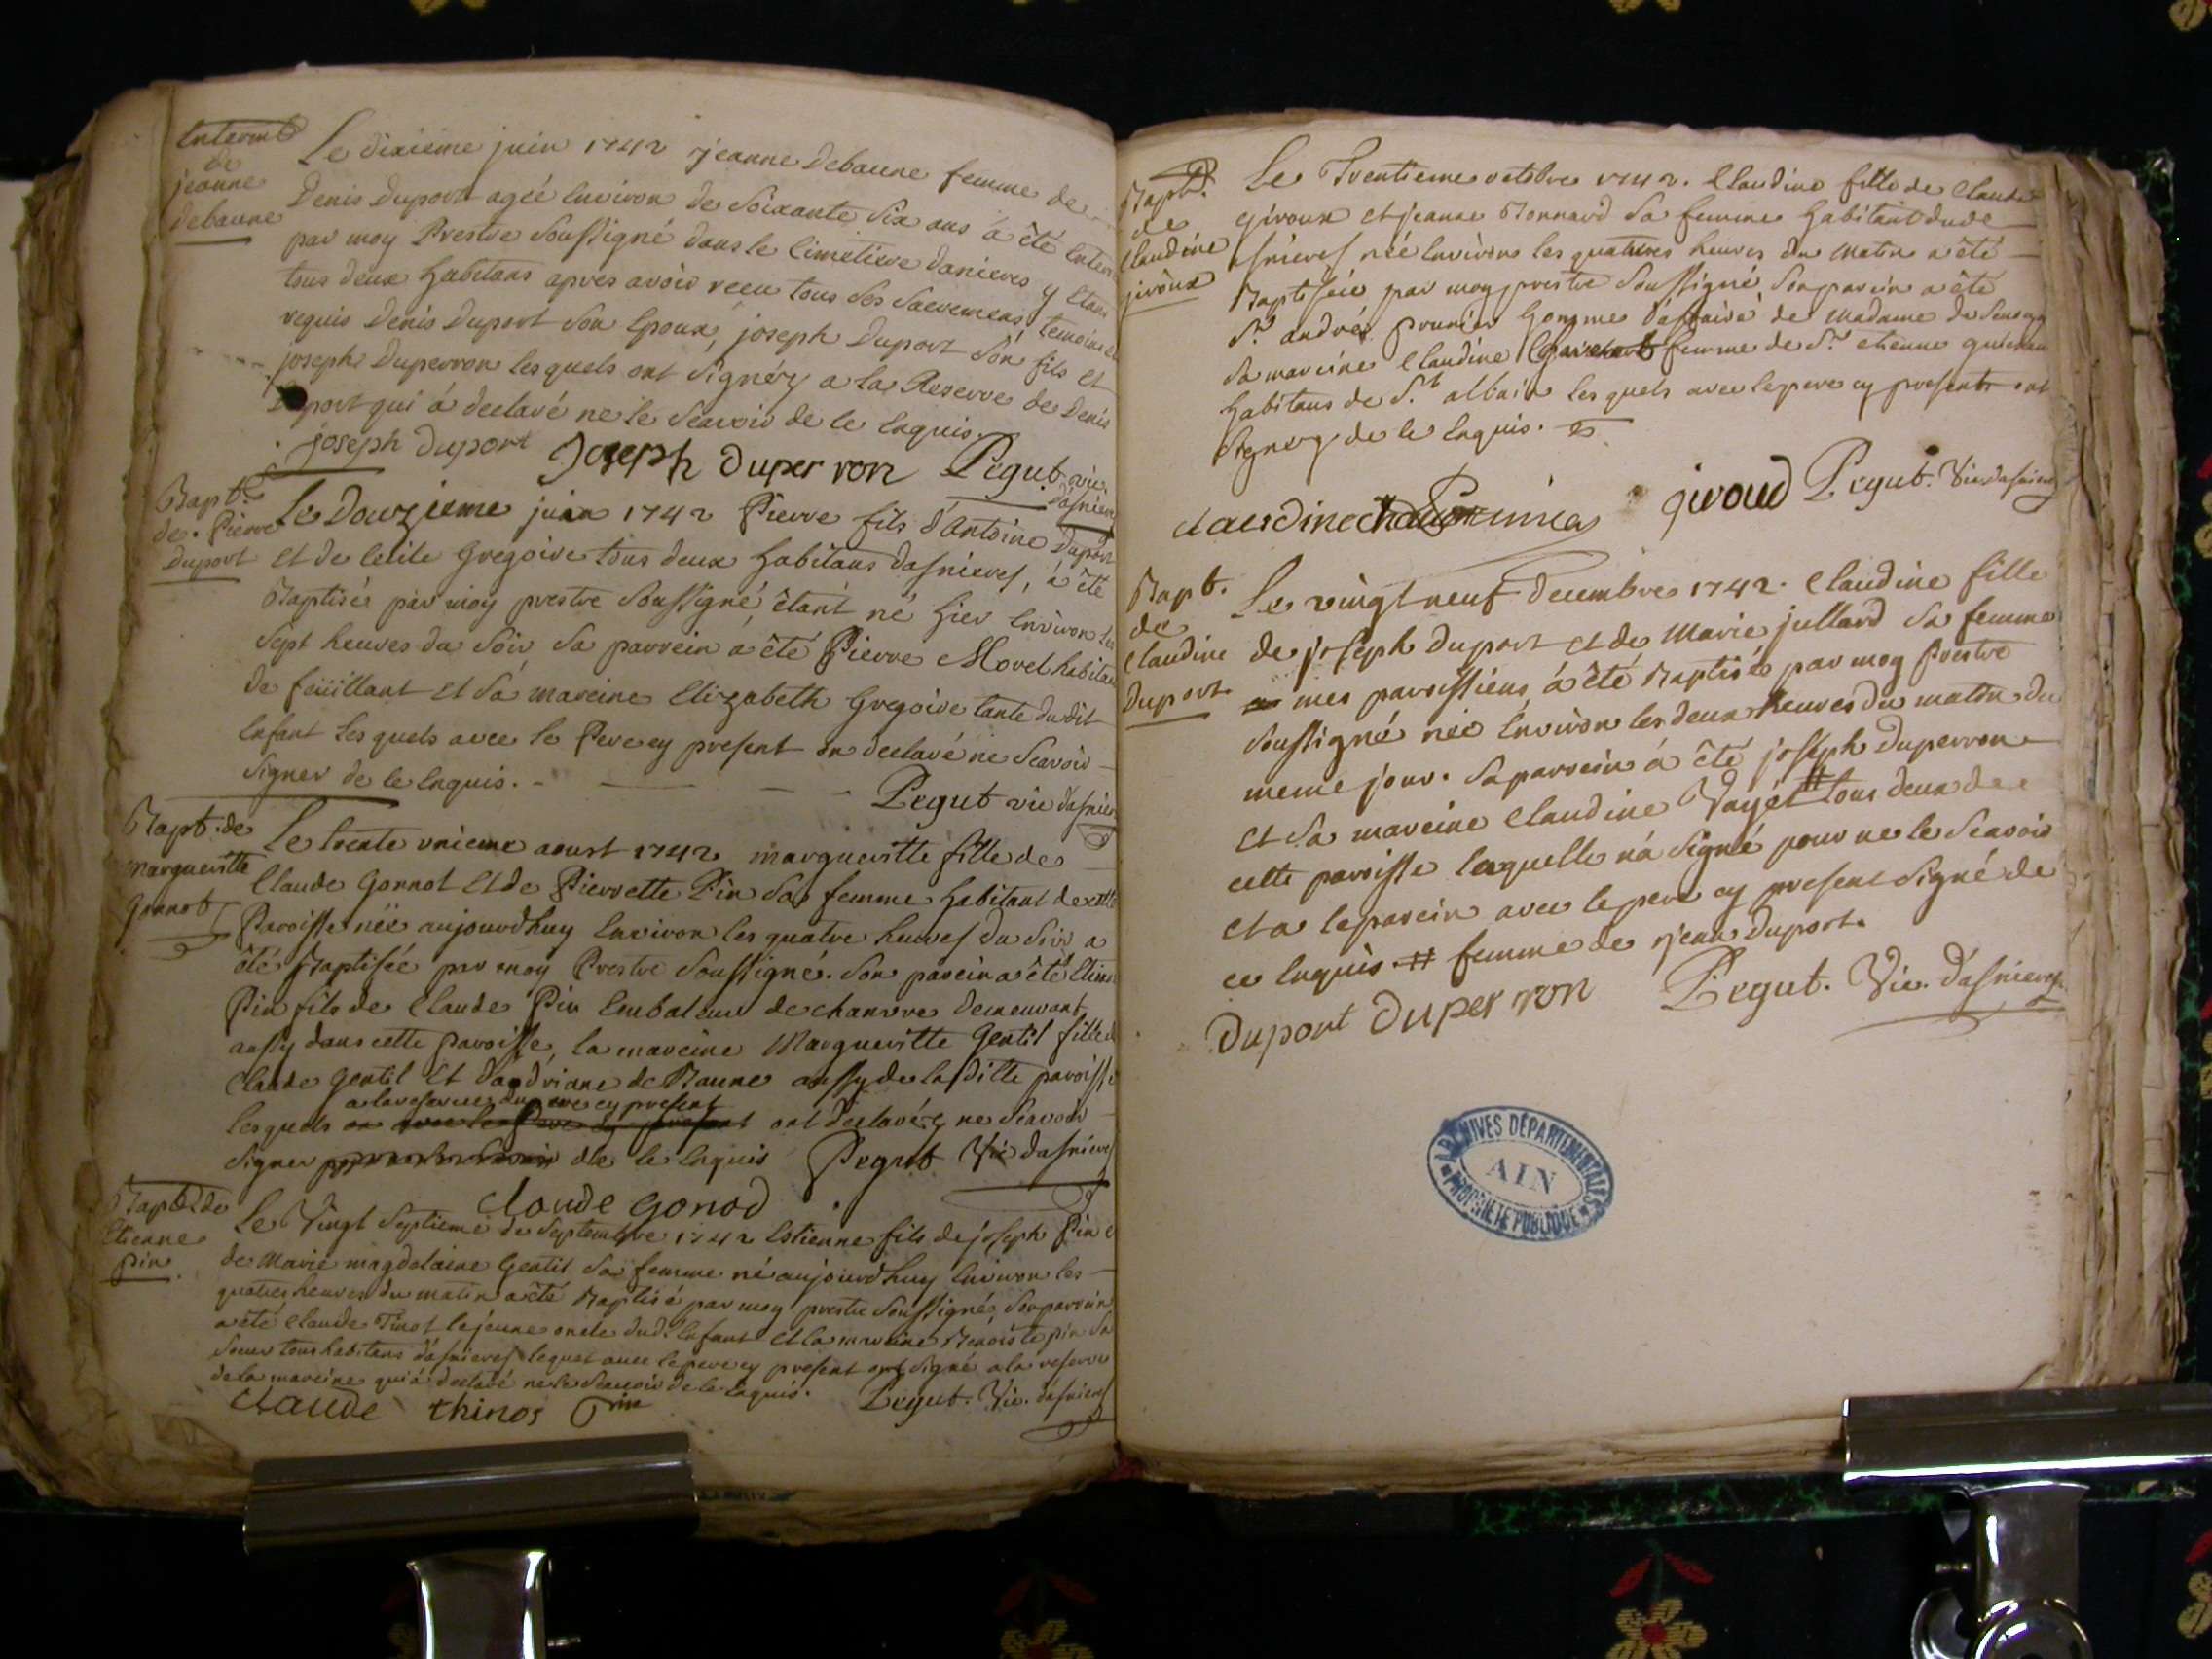 Enterrmt
de
jeanne
debaune
Le dixieme juin 1742 jeanne debaune femme de
Denis Duport agéé Environ de Soixante Six ans à êté Enter
par moy Prestre Soussigné dans le Cimetiere danieres y étans
tous deux habitans apres avoir receu tous Ses Sacremens, temoins
requis Denis Duport Son Epoux, joseph Duport Son fils Et
joseph Duperron lesquels ont Signéz a la Reserve de Denis
Duport qui à declaré ne le Scavoir de ce Enquis.
joseph Duport Joseph Duperron Pegut vic.
d'asnieres
Bapt.
de Pierre
Duport
Le Douzieme juin 1742 Pierre fils d'Antoine Duport
Et de Cecile Gregoire tous deux habitans dasnieres, à êté
Baptisée par moy prestre Soussigné, êtant né hier Environ les
Sept heures du Soir Sa parrein a êté Pierre Morel habitant
de feüillant Et Sa mareine Elizabeth Gregoire tante dudit
Enfant Lesquels avec le Pere cy present on declaré ne Scavoir
Signer de ce Enquis.
Pegut vic dasnier
Bapt. de
Margueritte
Gonnot
Le trente unieme aoust 1742 margueritte fille de
Claude Gonnot Et de Pierrette Pin Sa femme habitant de cette
Paroisse néë aujourdhuy Environ les quatre heures du Soir a
êté Baptisée par moy Prestre Soussigné. Son parein a êté Etien
Pin fils de Claude Pin Embaleur de chanvre Demeurant
aussy dans cette Paroisse, la mareine Margueritte Gentil fille d
Claude Gentil Et Dandriane de Baune aussy de la ditte paroisse
a la reserve du pere cy present
lesquels on avec le Pere cy present ont declaréz ne Scavoir
Signer de ce Enquis Pegut Vic dasnieres
Claude gonod
Bapt. de
Etienne
Pin
Le Vingt Septieme de Septembre 1742 Estienne fils de joseph Pin E
de Marie magdelaine Gentil Sa femme né aujourdhuy Environ les
quatres heures du matin a êté Baptisé par moy prestre Soussigné, Son parrein
a êté Claude Tinot le jeune oncle dud. Enfant Et la mareine Benoiste pin Sa
Soeur tous habitans d'asnieres lequel avec le pere cy present ont Signé a la reserve
de la mareine qui à declaré ne le Scavoir de ce Enquis. Pegut. Vic. dasnieres
claude thinos Pin
Bapt.
de
Claudine
jiroux
Le Trentieme octobre 1742. Claudine fille de Claude
Giroux Et jeanne Bonnard Sa femme habitant dude
asnieres néé Environs les quatres heures du Matin a êté
Baptiséé par moy prestre Soussigné Son parein a êté
Sr. andré prunier homme d'affaire de Madame de
Sa mareine Claudine femme de Sr. etienne
habitans de St. albain lesquels avec le pere cy present ont
Signez de ce Enquis.
giroud Pegut. Vic. dasnieres
Bapt.
de
Claudine
Duport
Le vingt neuf Decembre 1742. Claudine fille
de joseph Duport Et de Marie jullard Sa femme
mes paroissiens à êté Baptisée par moy Prestre
Soussigné néé Environ les deux heures du matin du
meme jour. Sa parrein à êté joseph Duperron
Et Sa mareine Claudine Vayet # tous deux de
cette paroisse laquelle n'à Signé pour ne le Scavoir
Et a le parein avec le pere cy present Signé de
ce Enquis. # femme de jean Duport.
Duport Duperron Pegut. Vic. d'asnieres
ARCHIVES DÉPARTEMENTALES
AIN
PROPRIÉTÉ PUBLIQUE